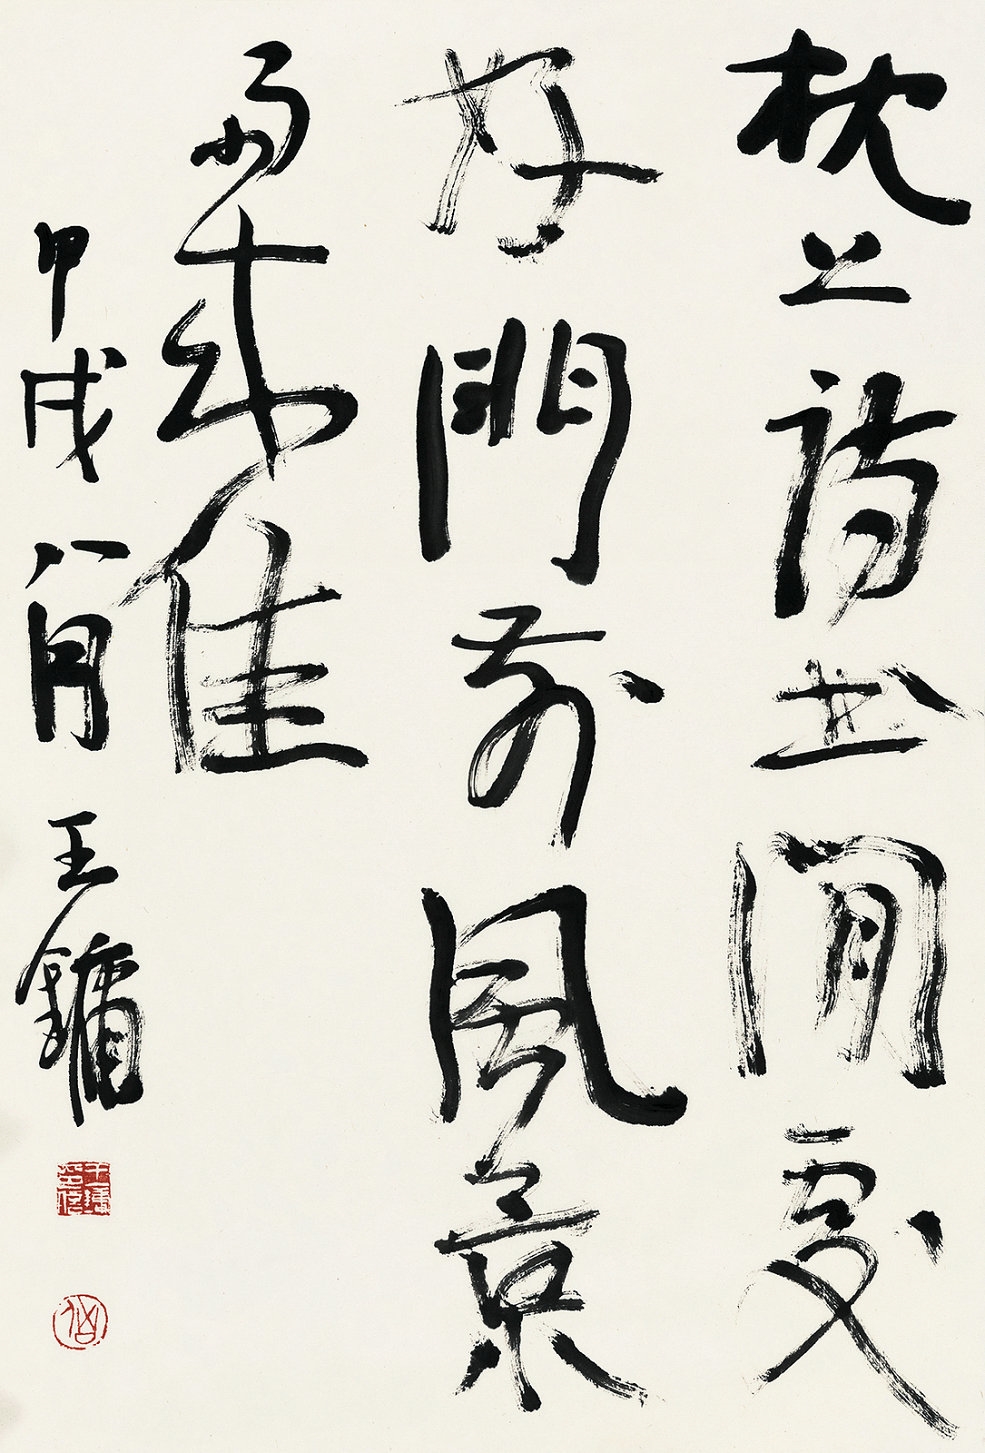 枕上詩書閒處
好門前風景
雨來佳
甲戌八月王鏞
王鏞印信